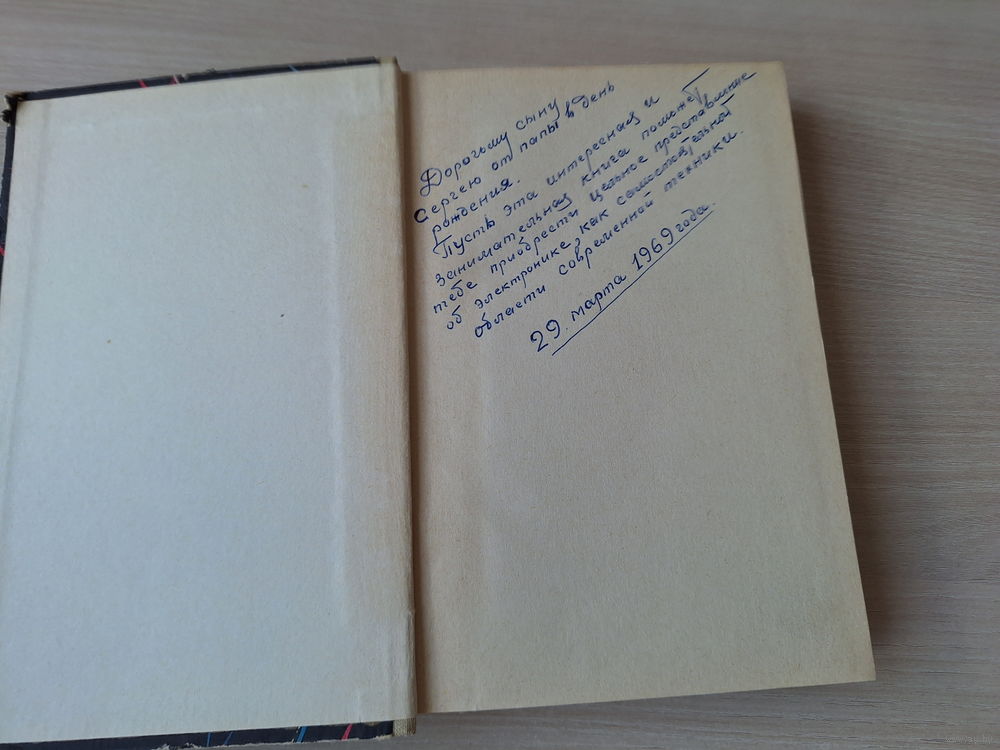 Дорогому сыну
Сергею от папы в день
рождения.
Пусть эта интересная и
занимательная книга поможет
тебе приобрести цельное представление
об электронике, как самостоятельной
области современной техники.
29. марта 1969 года.